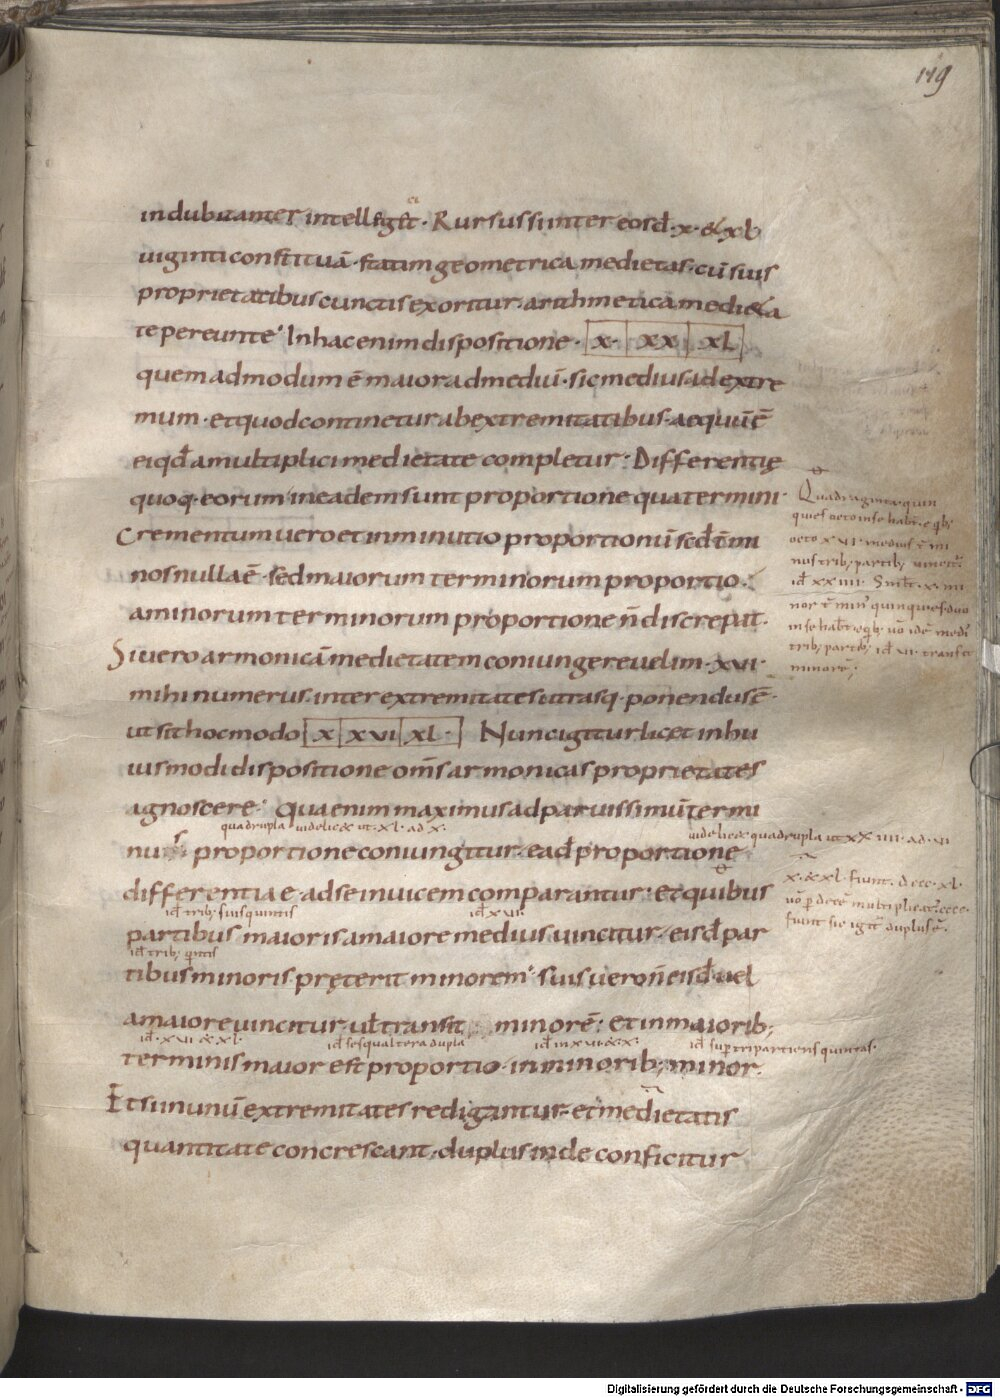 119
indubitanter intellegit. Rursus si inter eosd̄ x & xl
uiginti constituā statim geometrica medietas cū suis
proprietatibus cunctis exoritur arithmetica medi&a
te pereunte. In hac enim dispositione x xx xl
quemadmodum ē maior ad mediū sic medius ad extre
mum et quod continetur ab extremitatibus aequū ē
ei qd̄ a multiplici medietate completur. Differentię
quoq. eorum in eadem sunt proportione qua termini
Crementum uero et inminutio proportionū sed̄
nos nulla ē sed maiorum terminorum proportio
a minorum terminorum proportione n̄ discrepat.
Si uero armonicā medietatem coniungere uelim xvi
mihi numerus inter extremitates utrasq. ponendus ē
ut sit hoc modo x xvi xl Nunc igitur lic&in hu
iusmodi dispositione om̄s armonicas proprietates
agnoscere. Qua enim maximus ad paruissimū termi
quadrupla uidelic& ut xl ad x
uidelic& quadrupla ut xxiiii ad vi
nus proportione coniungitur ead̄ proportione
differentiae ad se inuicem comparantur: et quibus
id̄ trib; suis quintis
id̄ xvi
partibus maioris a maiore medius uincitur eisd̄ par
id̄ trib; quintis
tibus minoris pręterit minorem suis uero n̄ eisd̄ uel
a maiore uincitur ul̄ transit minorē: et in maiorib;
id̄ xvi & xl
id̄ sesqualtera dupla
id̄ in xvi & x
id̄ sup̄tripartiens quintas
terminis maior est proportio in minorib; minor.
Et si in unū extremitates redigantur et medietatis
quantitate concrescant duplus inde conficitur
Quadraginta quin
quies octo in se hab&
octo xvi medius
trib; partib; uincit
id̄ xxiiii
nor quinquies duo
in se hab&
trib; partib; id̄ vi transit
minorē;
x & xl fiunt
multiplicat cccc
fiunt sic igit̄ duplus ē
Digitalisierung gefördert durch die Deutsche Forschungsgemeinschaft - DFG